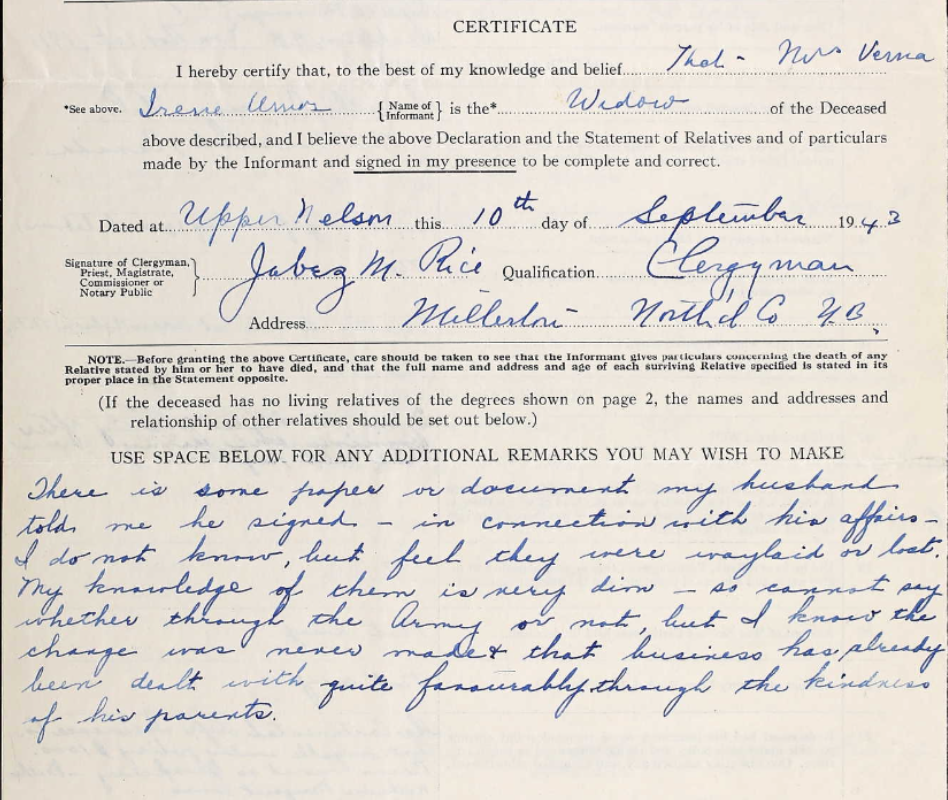 CERTIFICATE
I hereby certify that, to the best of my knowledge and belief That - Mrs Verna
*See above. Irene Amos { Name of Informant } is the* Widow of the Deceased
above described, and I believe the above Declaration and the Statement of Relatives and of particulars
made by the Informant and signed in my presence to be complete and correct.
Dated at Upper Nelson this 10th day of September 1943
Signature of Clergyman, Priest, Magistrate, Commissioner or Notary Public } Jabez M. Rice Qualification Clergyman
Address Millerton North'd Co N.B.
NOTE.—Before granting the above Certificate, care should be taken to see that the Informant gives particulars concerning the death of any
Relative stated by him or her to have died, and that the full name and address and age of each surviving Relative specified is stated in its
proper place in the Statement opposite.
(If the deceased has no living relatives of the degrees shown on page 2, the names and addresses and
relationship of other relatives should be set out below.)
USE SPACE BELOW FOR ANY ADDITIONAL REMARKS YOU MAY WISH TO MAKE
There is some paper or document my husband
told me he signed - in connection with his affairs -
I do not know, but feel they were waylaid or lost.
My knowledge of them is very dim - so cannot say
whether through the Army or not, but I know the
change was never made & that business has already
been dealt with quite favourably through the kindness
of his parents.